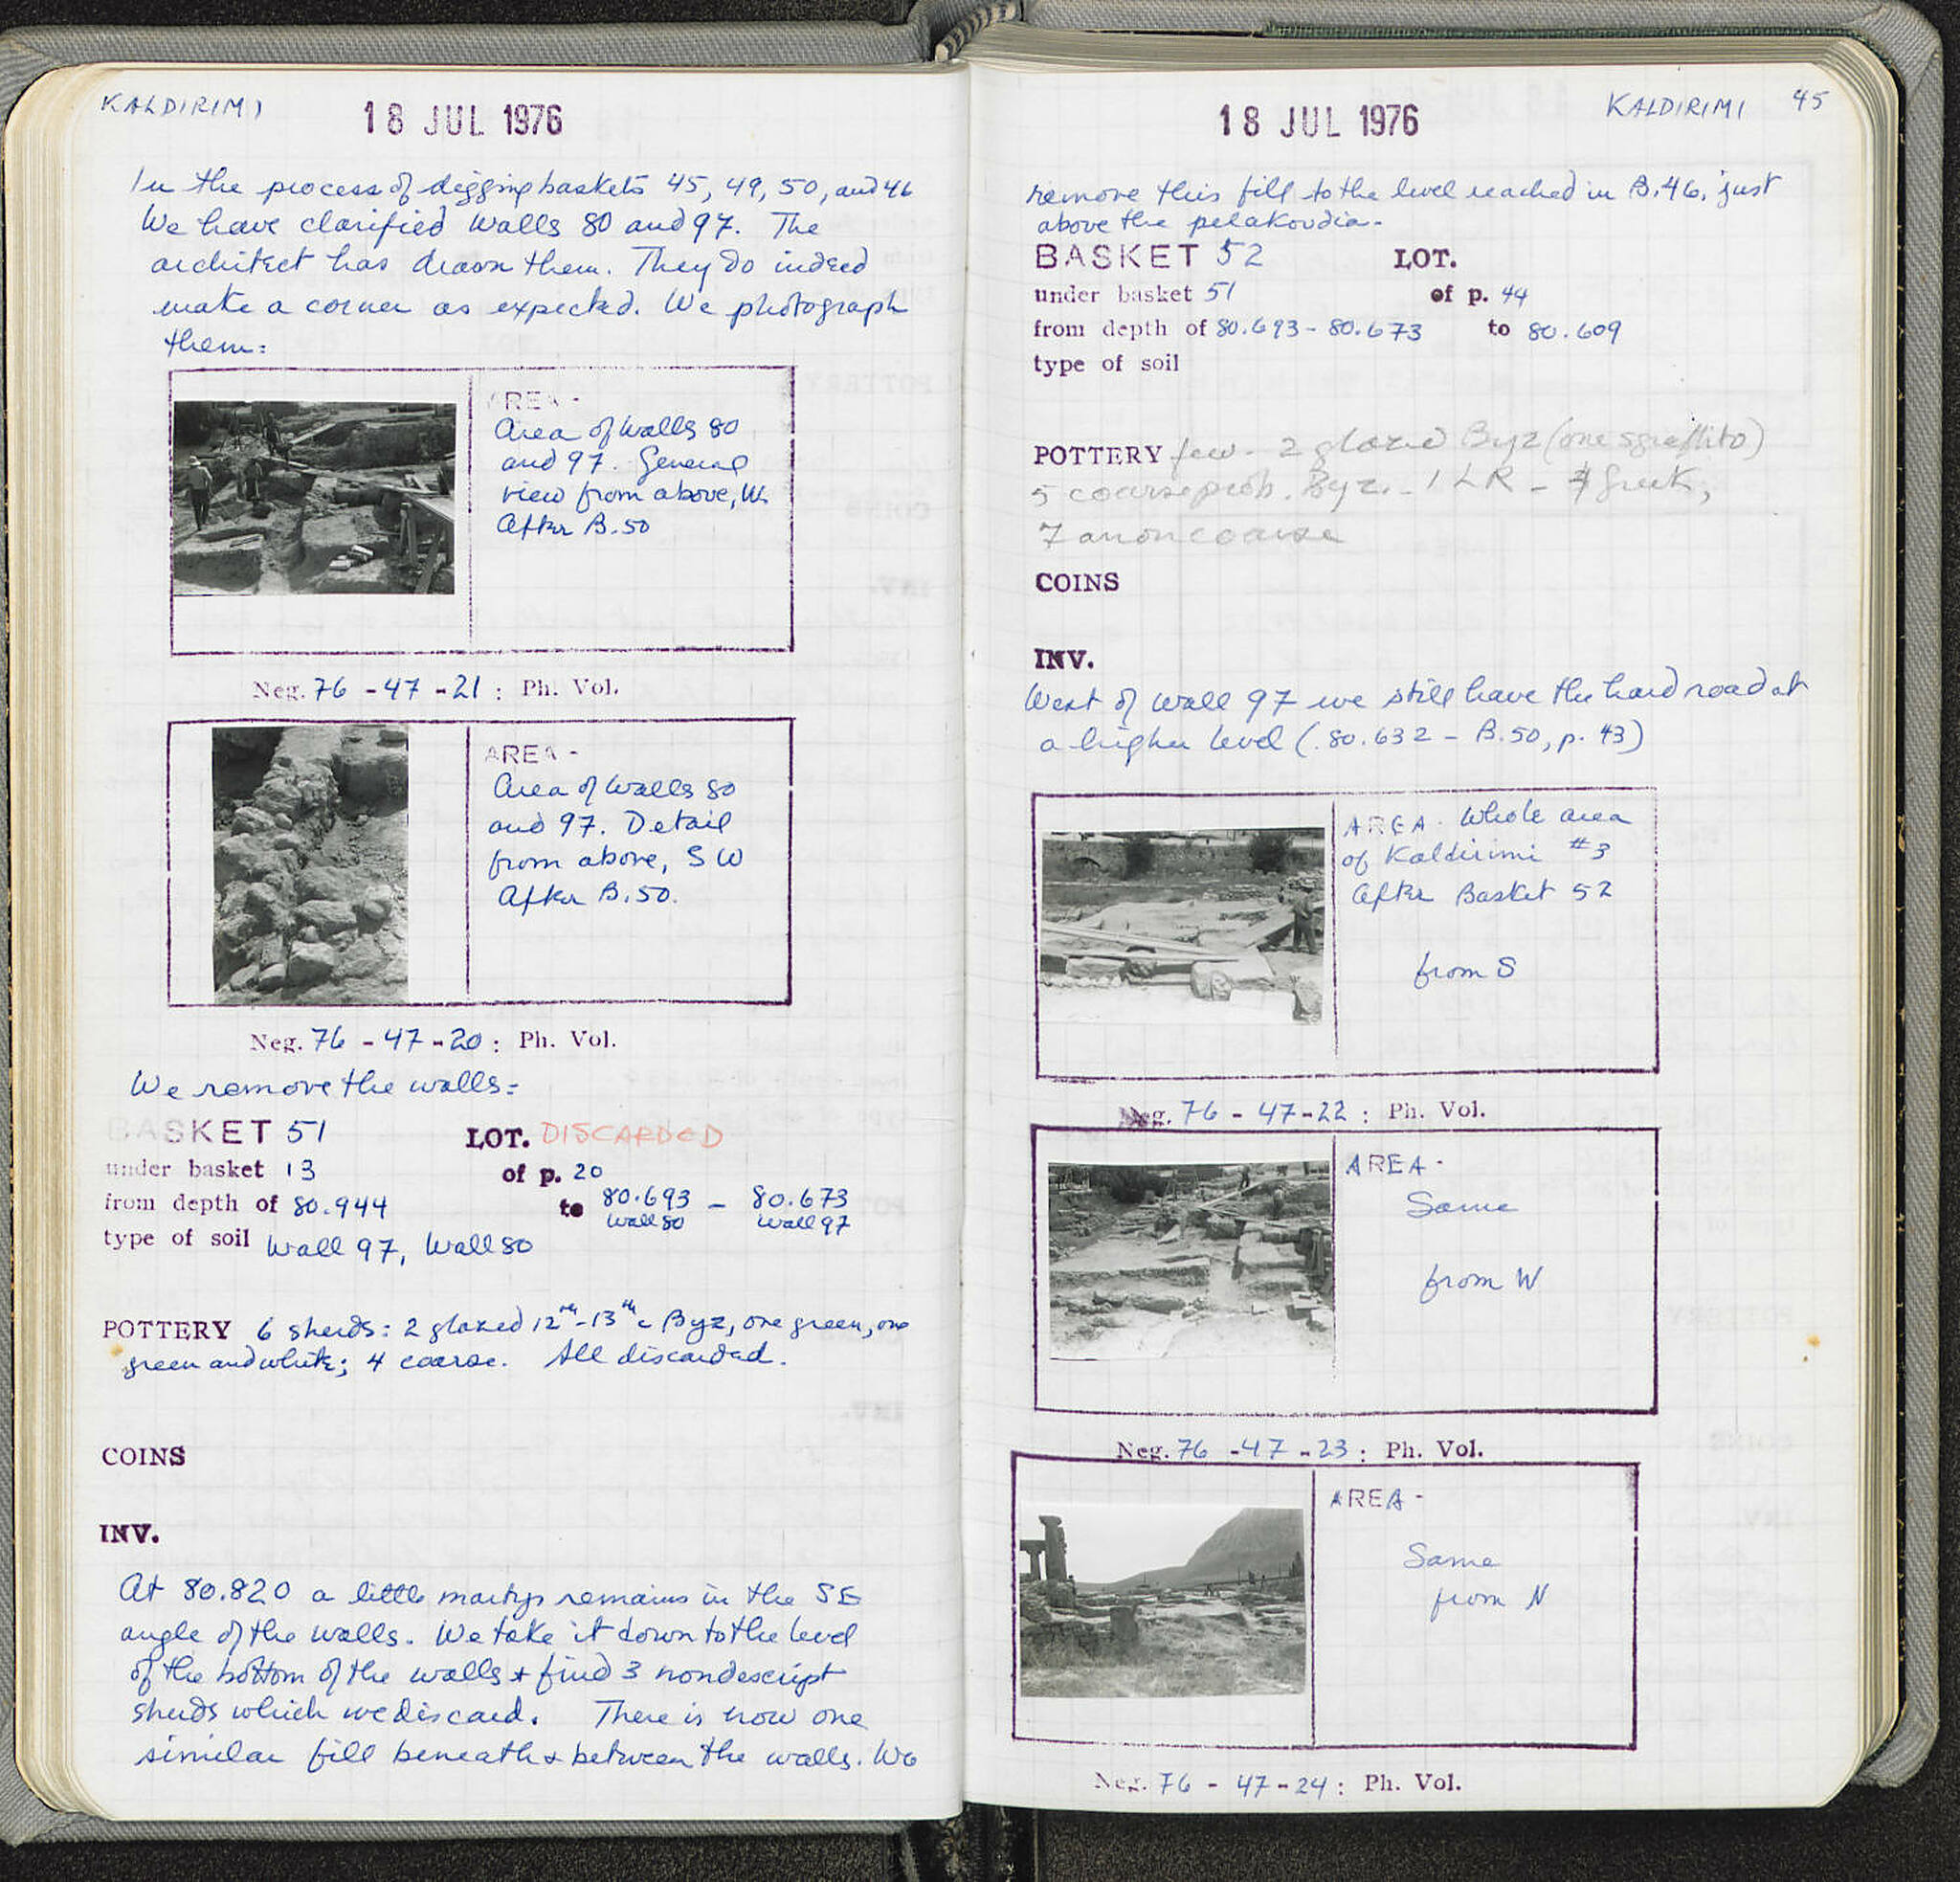 KALDIRIMI
18 JUL 1976
In the process of digging baskets 45, 49, 50, and 46
We have clarified Walls 80 and 97. The
architect has drawn them. They do indeed
make a corner as expected. We photograph
them:
AREA -
Area of Walls 80
and 97. General
view from above, W.
After B.50
Neg. 76 - 47 - 21 : Ph. Vol.
AREA -
Area of Walls 80
and 97. Detail
from above, SW
After B.50.
Neg. 76 - 47 - 20 : Ph. Vol.
We remove the walls:
BASKET 51 LOT. DISCARDED
under basket 13 of p. 20
from depth of 80.944 to 80.693 - 80.673
wall 80 wall 97
type of soil Wall 97, Wall 80
POTTERY 6 sherds: 2 glazed 12th-13th c Byz, one green, one
green and white; 4 coarse. All discarded.
COINS
INV.
At 80.820 a little martys remains in the SE
angle of the walls. We take it down to the level
of the bottom of the walls & find 3 nondescript
sherds which we discard. There is now one
similar fill beneath & between the walls. We
18 JUL 1976
KALDIRIMI 45
remove this fill to the level reached in B.46, just
above the pelakoudia.
BASKET 52 LOT.
under basket 51 of p. 44
from depth of 80.693 - 80.673 to 80.609
type of soil
POTTERY few - 2 glazed Byz (one sgraffito)
5 coarse prob. Byz. - 1 LR - Greek,
7 anon coarse
COINS
INV.
West of Wall 97 we still have the hard road at
a higher level (.80.632 - B.50, p. 43)
AREA. Whole area
of Kaldirimi #3
After Basket 52
from S
Neg. 76 - 47 - 22 : Ph. Vol.
AREA -
Same
from W
Neg. 76 - 47 - 23 : Ph. Vol.
AREA -
Same
from N
Neg. 76 - 47 - 24 : Ph. Vol.